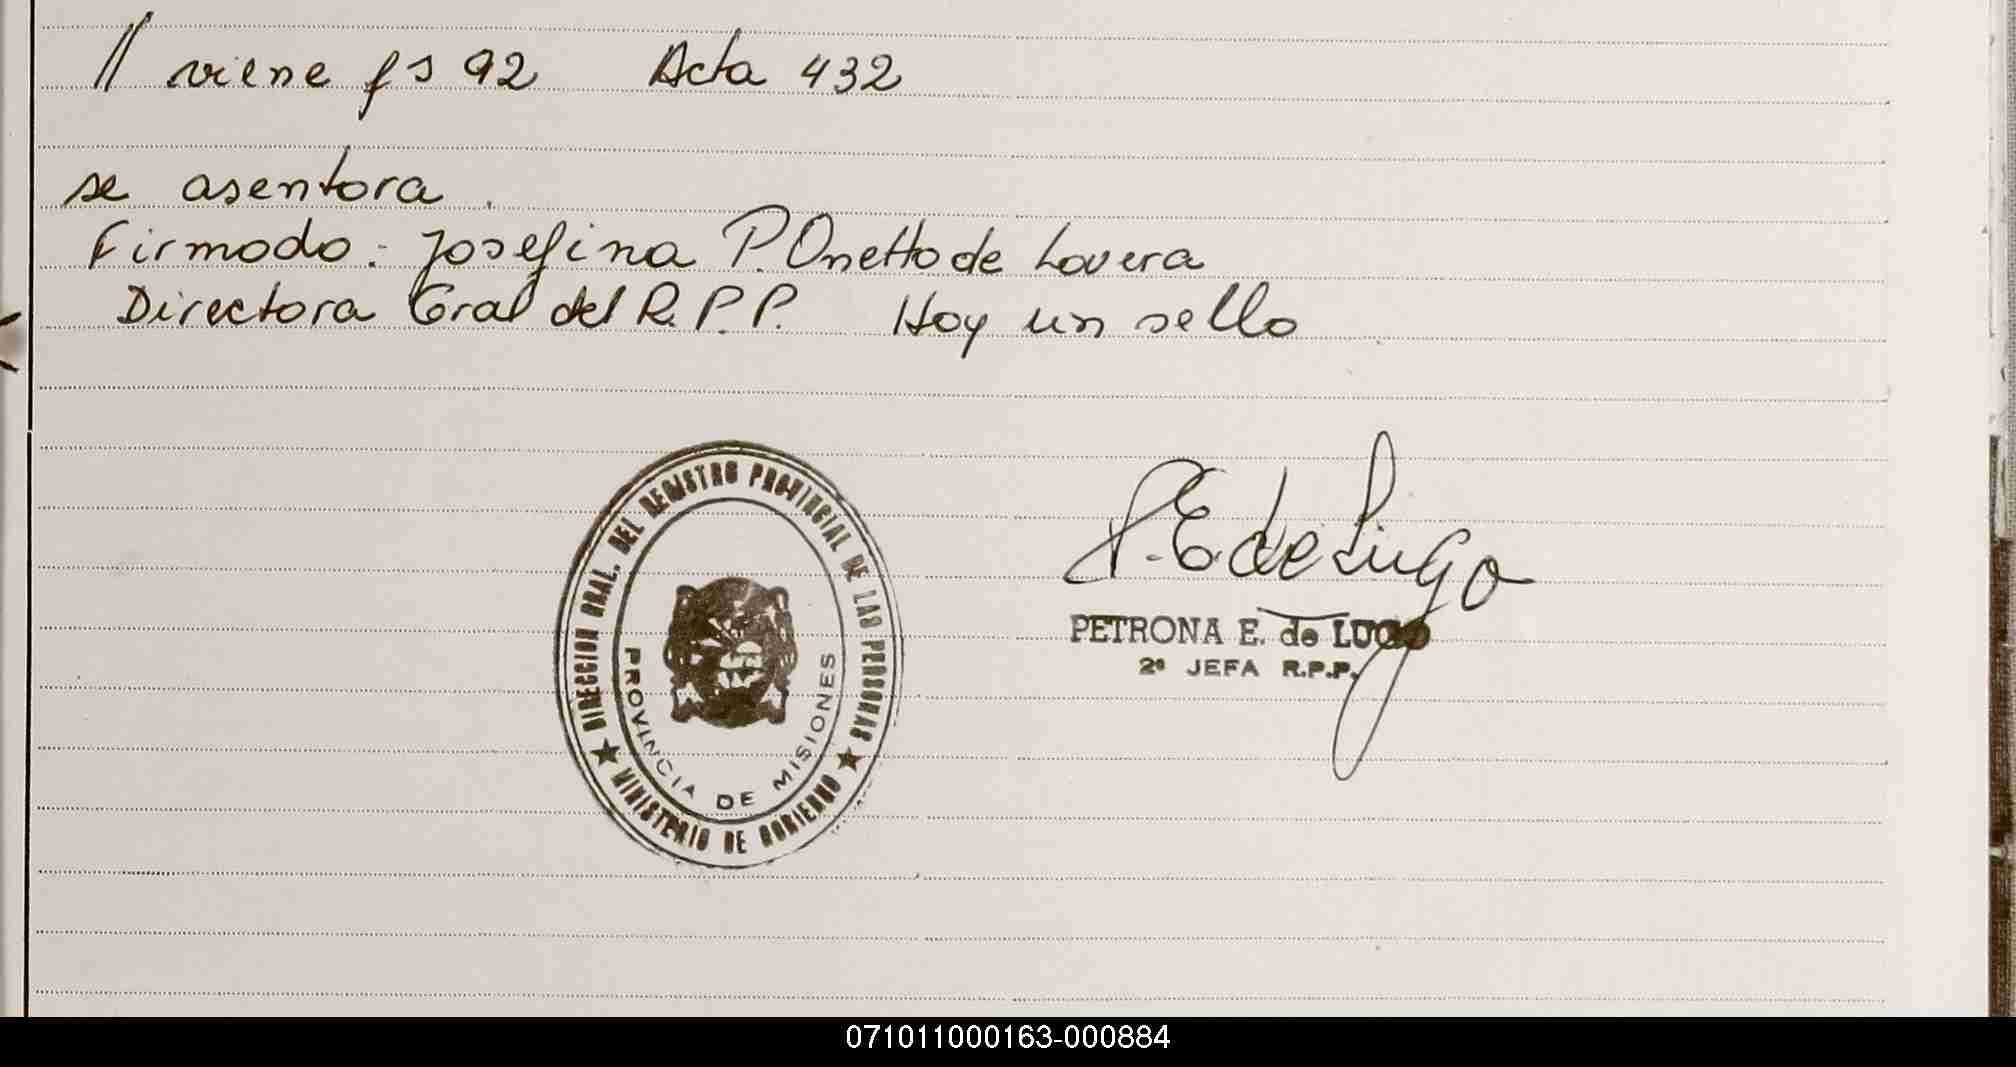 // viene fs 92 Acta 432
se asentora.
Firmodo: Josefina P. Onetto de Lovera
Directora Gral del R.P.P. Hoy un sello
DIRECCION GRAL. DEL REGISTRO PROVINCIAL DE LAS PERSONAS
PROVINCIA DE MISIONES
MINISTERIO DE GOBIERNO
P.E de Lugo
PETRONA E. de LUGO
2ª JEFA R.P.P.
071011000163-000884